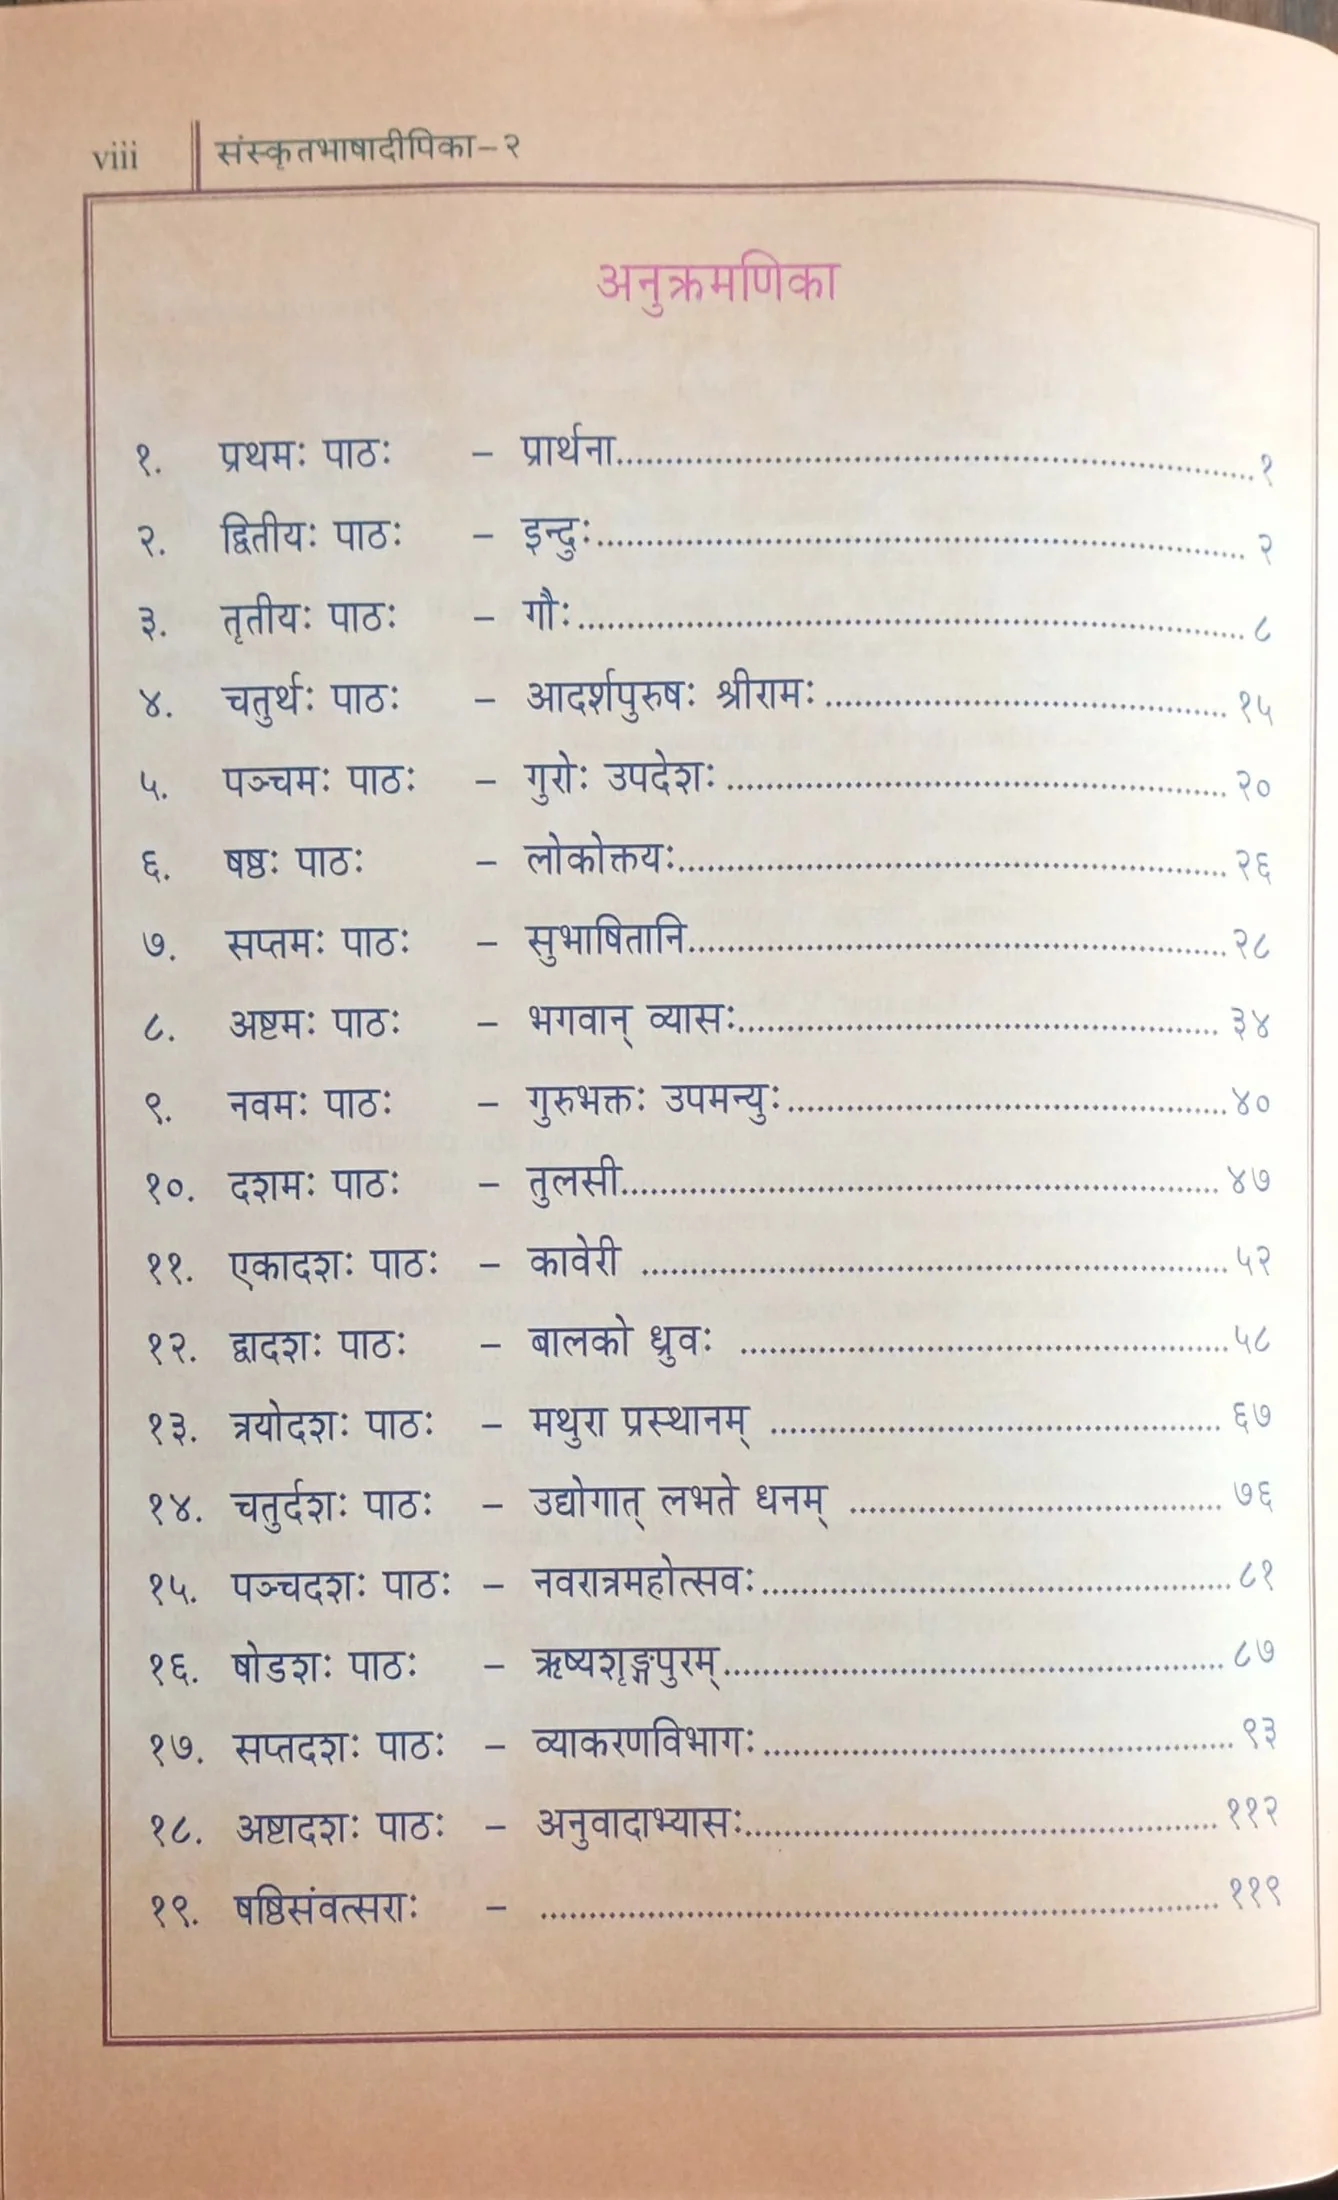 viii संस्कृतभाषादीपिका–२
अनुक्रमणिका
१. प्रथमः पाठः – प्रार्थना.......................................................१
२. द्वितीयः पाठः – इन्दुः....................................................... २
३. तृतीयः पाठः – गौः....................................................... ८
४. चतुर्थः पाठः – आदर्शपुरुषः श्रीरामः ........................................ १५
५. पञ्चमः पाठः – गुरोः उपदेशः .................................................. २०
६. षष्ठः पाठः – लोकोक्तयः....................................................... २६
७. सप्तमः पाठः – सुभाषितानि.......................................................२८
८. अष्टमः पाठः – भगवान् व्यासः................................................. ३४
९. नवमः पाठः – गुरुभक्तः उपमन्युः.............................................४०
१०. दशमः पाठः – तुलसी............................................................ ४७
११. एकादशः पाठः – कावेरी ............................................................५२
१२. द्वादशः पाठः – बालको ध्रुवः ..................................................५८
१३. त्रयोदशः पाठः – मथुरा प्रस्थानम् .............................................. ६७
१४. चतुर्दशः पाठः – उद्योगात् लभते धनम् ...................................... ७६
१५. पञ्चदशः पाठः – नवरात्रमहोत्सवः................................................८१
१६. षोडशः पाठः – ऋष्यशृङ्गपुरम्................................................... ८७
१७. सप्तदशः पाठः – व्याकरणविभागः................................................ ९३
१८. अष्टादशः पाठः – अनुवादाभ्यासः................................................ ११२
१९. षष्ठिसंवत्सराः – ..................................................................... ११९